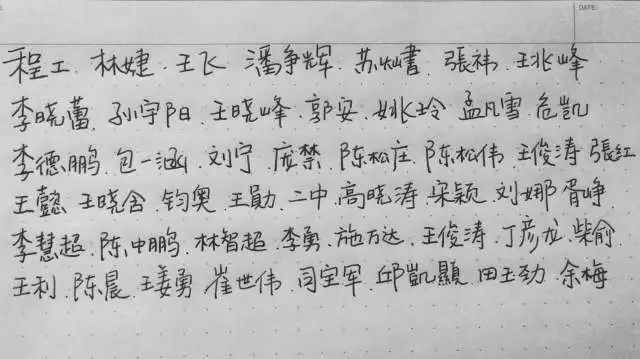 DATE:
程工.林婕.王飞.潘争辉.苏灿書.張祎.王兆峰
李晓蕾.孙宇阳.王晓峰.郭安.姚玲.孟凡雪.危凯
李德鹏.包一涵.刘宁.庞禁.陈松庄.陈松伟.王俊涛.張红
王懿.王晓含.钧奥.王勋.二中.高晓涛.宋颖.刘娜.胥峥
李慧超.陈中鹏.林智超.李勇.施万达.王俊涛.丁彦龙.柴俞
王利.陈晨.王姜勇.崔世伟.闫宝军.邱凯顯.田王劲.余梅